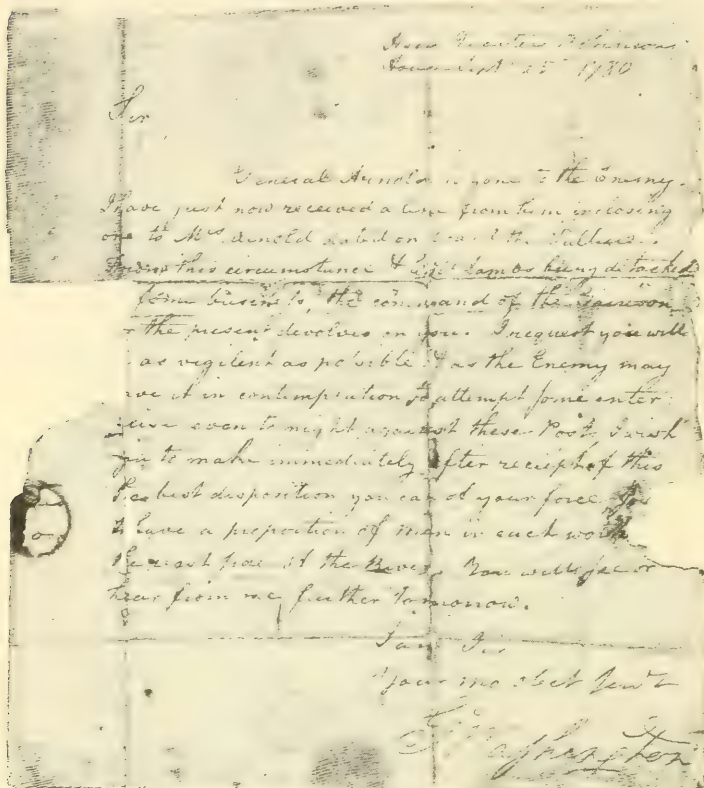 Head Quarters Robinsons
House Sept 25 1780
Sir
General Arnold is gone to the Enemy.
I have just now received a line from him inclosing
one to Mrs Arnold dated on board the Vulture.
From this circumstance & Lambs being detached
the command of the Garrison
the present devolves on you. I request you will
as vigilent as possible & as the Enemy may
ve it in contemplation to attempt some enter
even to night against these Posts, I wish
you to make immediately after reciept of this
the best disposition you can of your force
to have a proportion of men in each work
the west side of the River. You will see or
hear from me further tomorrow.
I am Sir
Your mo obet Servt
G Washington